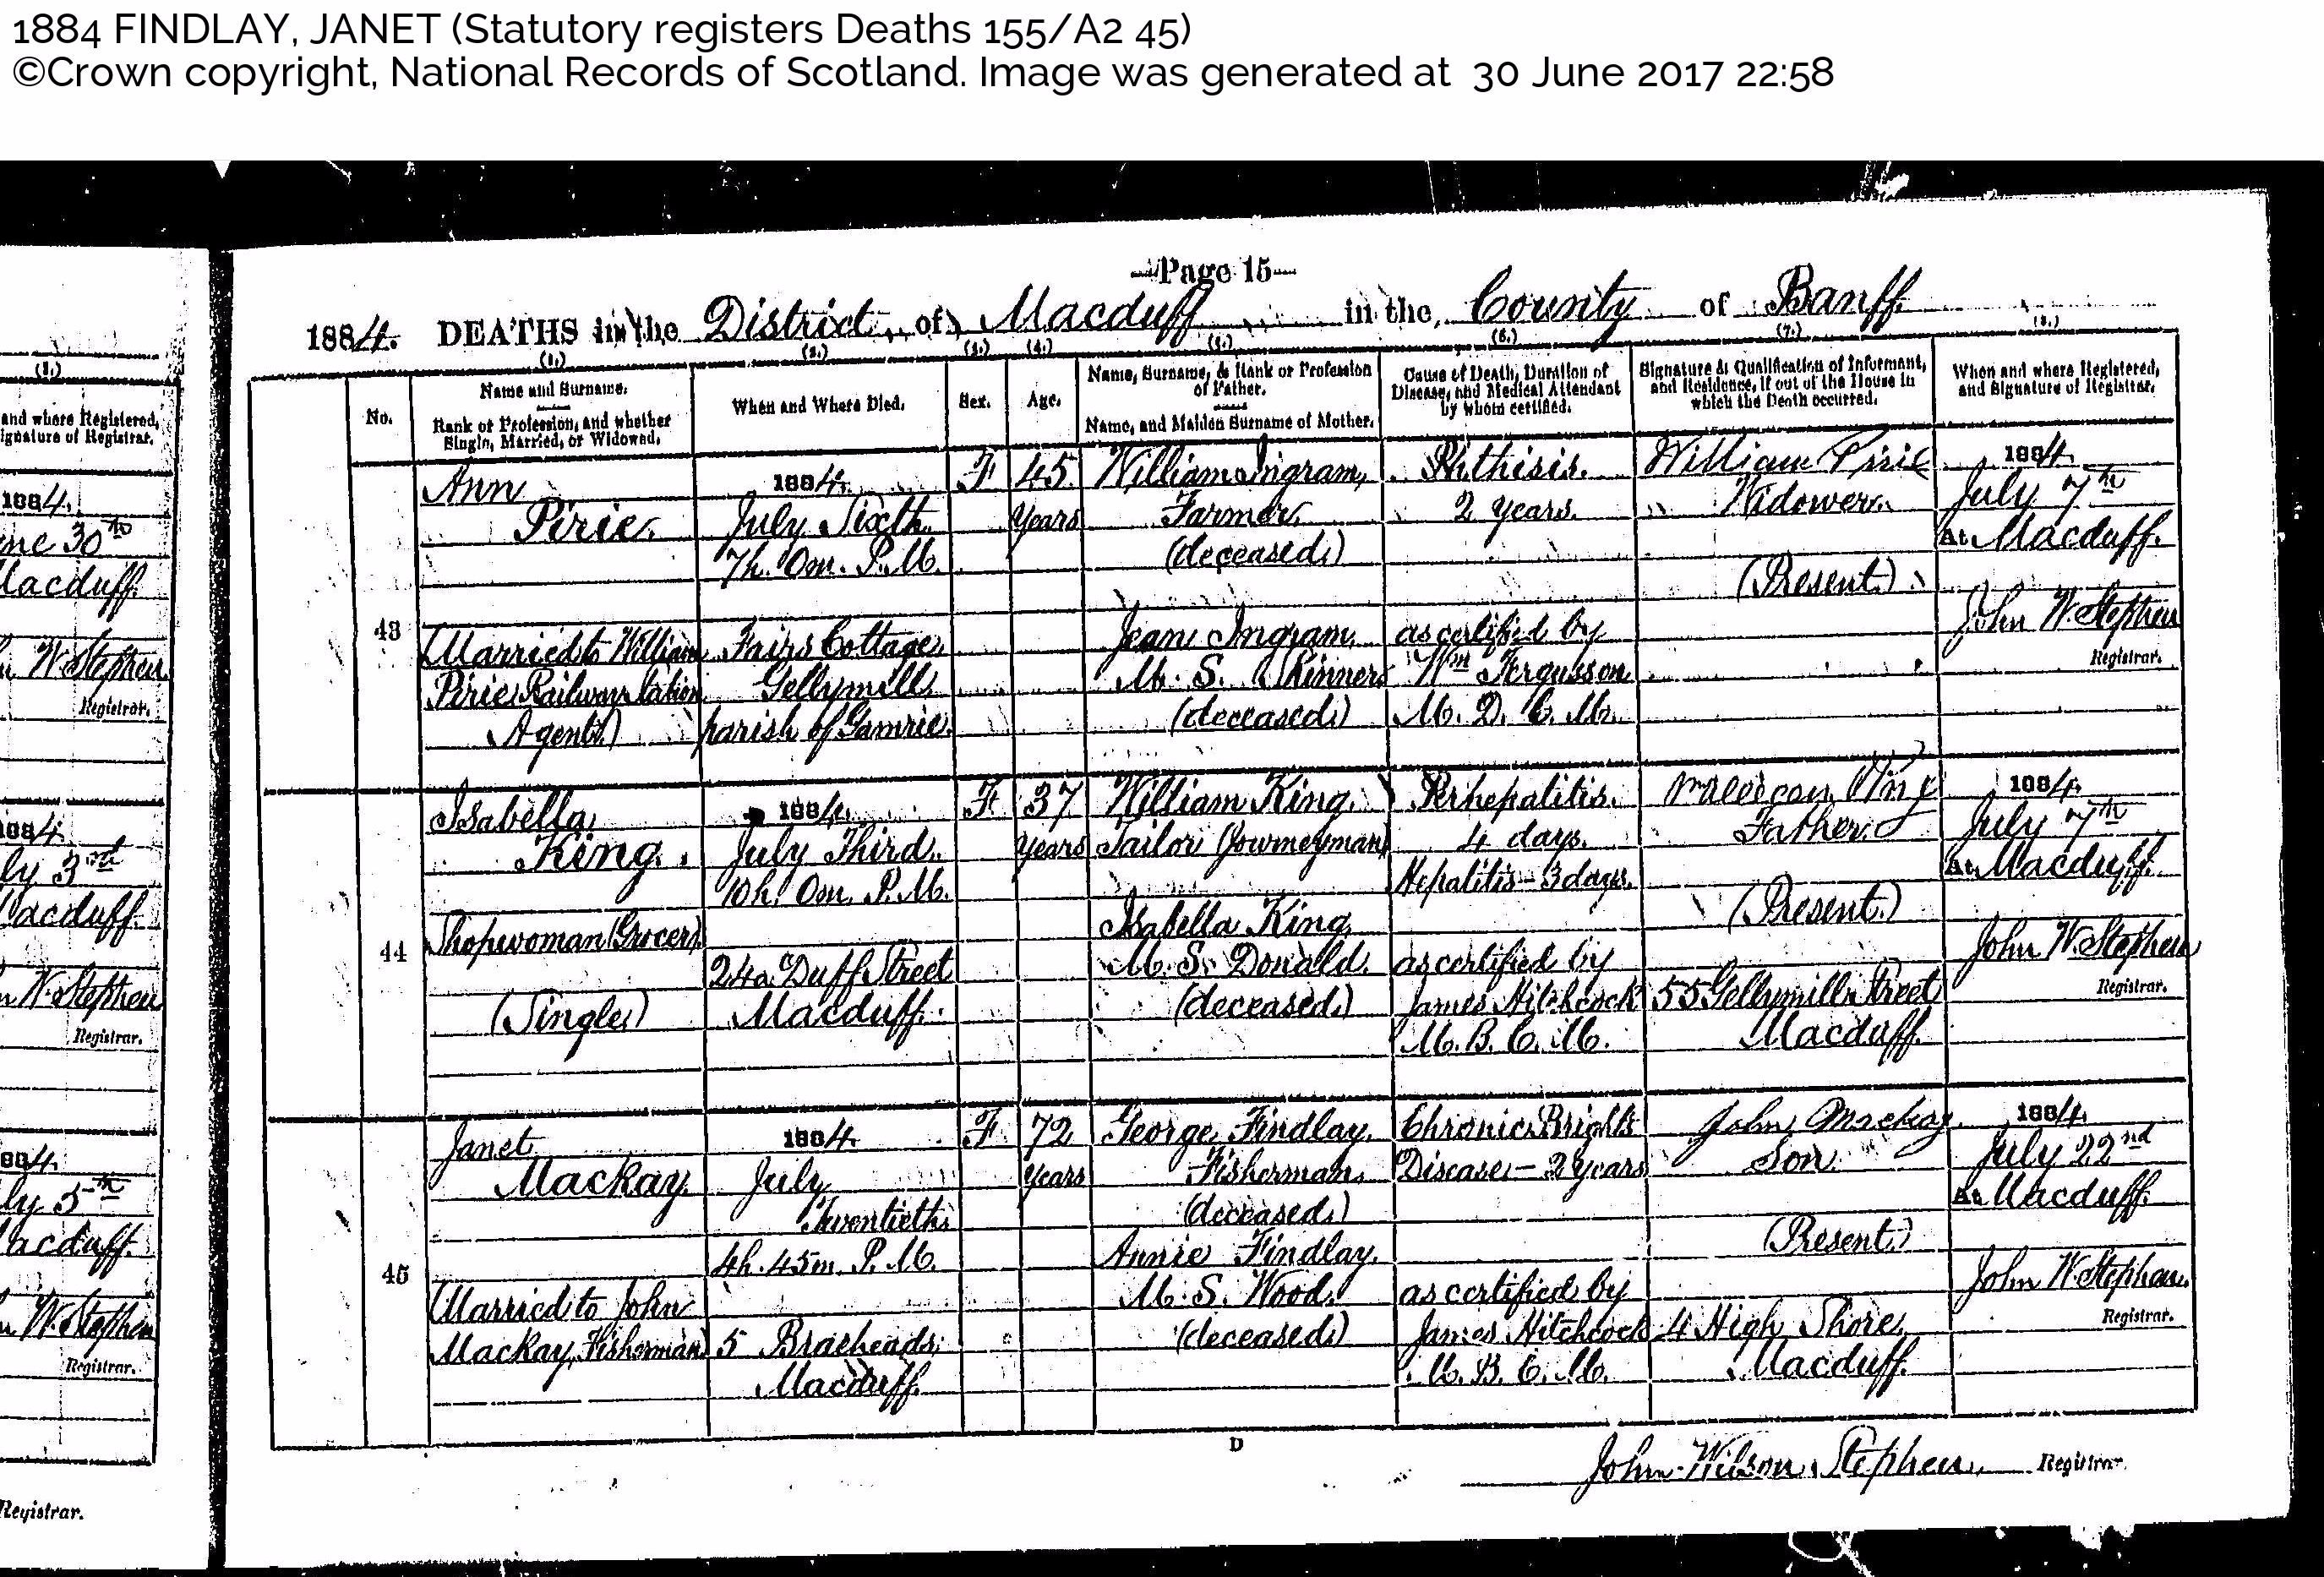 1884 FINDLAY, JANET (Statutory registers Deaths 155/A2 45)
©Crown copyright, National Records of Scotland. Image was generated at 30 June 2017 22:58
Page 15
1884. DEATHS in the District of Macduff in the County of Banff
(1.) (2.) (3.) (4.) (5.) (6.) (7.) (8.)
No.
Name and Surname.
Rank or Profession, and whether
Single, Married, or Widowed.
When and Where Died.
Sex.
Age.
Name, Surname, & Rank or Profession
of Father.
Name, and Maiden Surname of Mother.
Cause of Death, Duration of
Disease, and Medical Attendant
by whom certified.
Signature & Qualification of Informant,
and Residence, if out of the House in
which the Death occurred.
When and where Registered,
and Signature of Registrar.
43
Ann
Pirie
(Married to William
Pirie Railway Station
Agent)
1884.
July Sixth
7h. 0m. P.M.
Fairs Cottage
Gellymill
parish of Gamrie
F
45
Years
William Ingram,
Farmer
(deceased)
Jean Ingram
M. S. Skinner
(deceased)
Phthisis.
2 years.
as certified by
Wm Fergusson
M. D. C. M.
William Pirie
Widower
(Present)
1884.
July 7th
At Macduff.
John W. Stephen
Registrar.
44
Isabella
King
Shopwoman (Grocer's)
(Single)
1884.
July Third
10h. 0m. P.M.
24a Duff Street
Macduff.
F
37
Years
William King
Tailor (Journeyman)
Isabella King
M. S. Donald.
(deceased)
Perhepatitis.
4 days.
Hepatitis - 3 days.
as certified by
James Hitchcock
M. B. C. M.
William King
Father.
(Present.)
55 Gellymill Street
Macduff.
1884.
July 7th
At Macduff.
John W. Stephen
Registrar.
45
Janet
Mackay
(Married to John
Mackay, Fisherman)
1884.
July
Twentieth
4h. 45m. P.M.
5 Braeheads
Macduff.
F
72
Years
George Findlay
Fisherman,
(deceased)
Annie Findlay.
M. S. Wood.
(deceased)
Chronic Brights
Disease - 2 years
as certified by
James Hitchcock
M. B. C. M.
John Mackay
Son
(Present.)
4 High Shore
Macduff.
1884.
July 22nd
At Macduff.
John W. Stephen
Registrar.
D
John Wilson Stephen, Registrar.